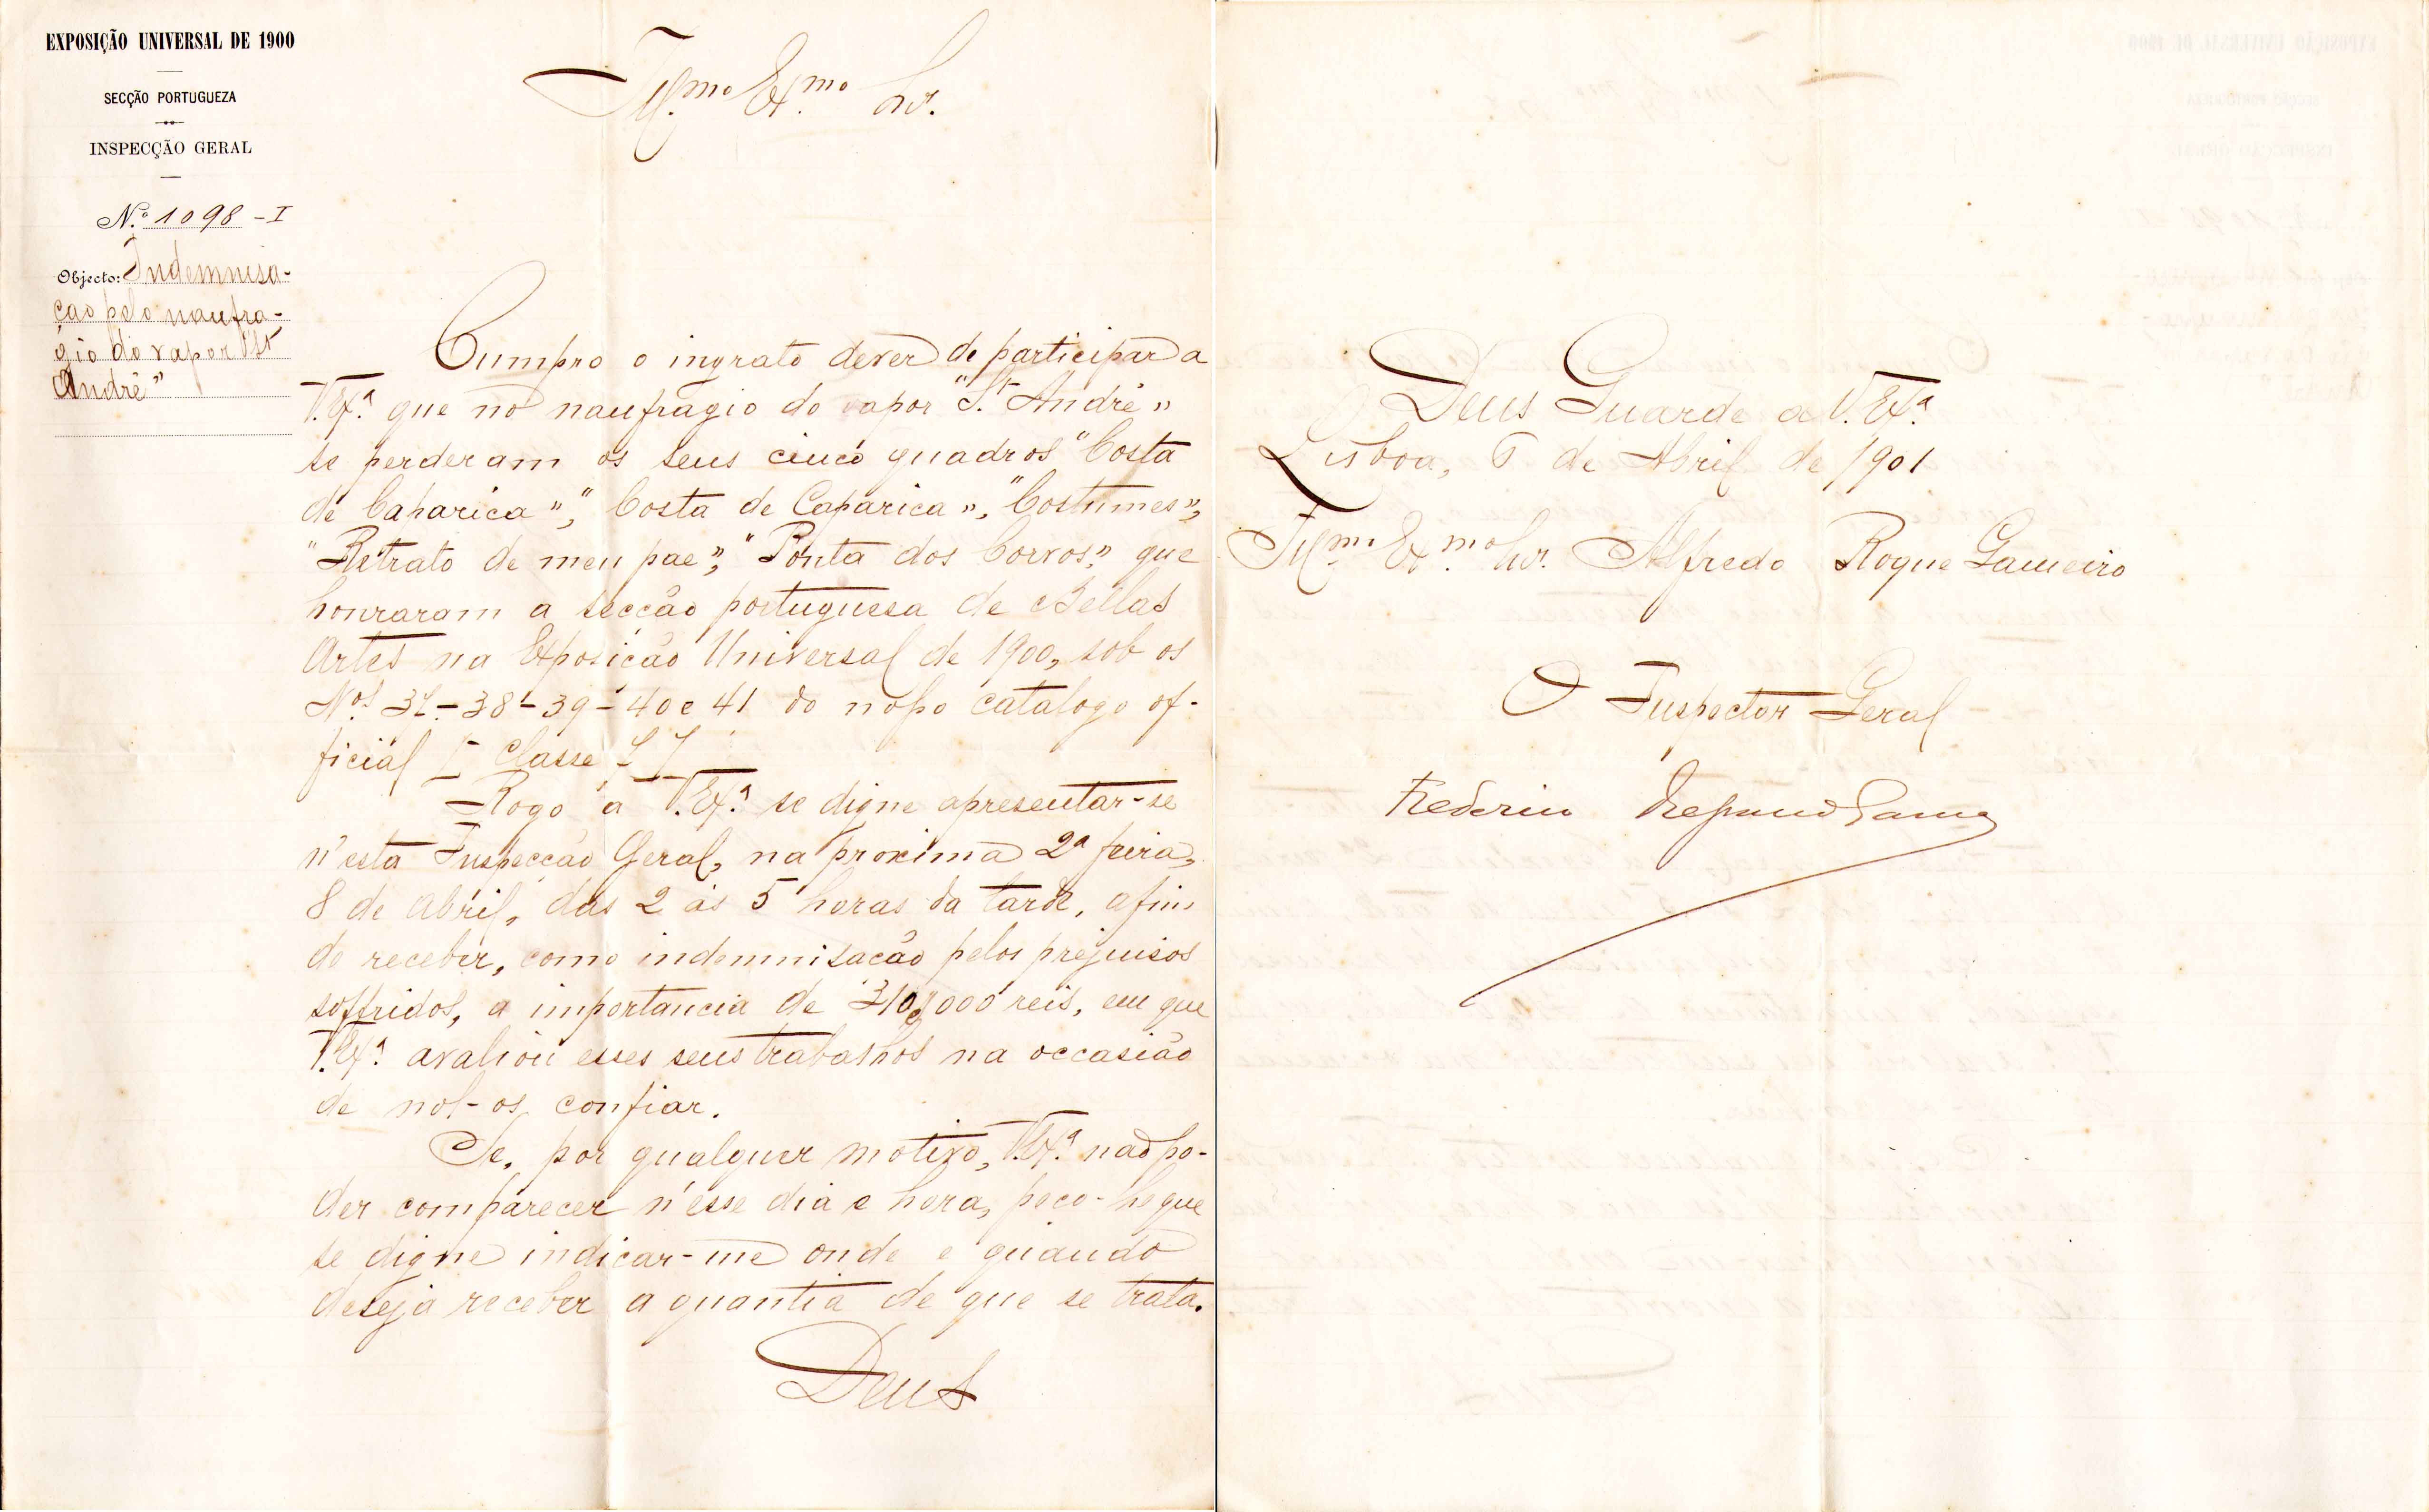 EXPOSIÇÃO UNIVERSAL DE 1900
SECÇÃO PORTUGUEZA
INSPECÇÃO GERAL
N.º 1098 - I
Objecto: Indemnisa-
ção pelo naufra-
gio do vapor "St
André"
Ill.mo Ex.mo Snr.
Cumpro o ingrato dever de participar a
V. Ex.ª que no naufragio do vapor "St. André"
se perderam os seus cinco quadros "Costa
de Caparica", "Costa de Caparica", "Costumes",
"Retrato de meu pae", "Ponta dos Corvos", que
honraram a secção portugueza de Bellas
Artes na Exposição Universal de 1900, sob os
Nos. 37 - 38 - 39 - 40 e 41 do nosso catalogo of-
ficial [Classe 7]
Rogo a V. Ex.ª se digne apresentar-se
n'esta Inspecção Geral, na proxima 2ª feira,
8 de Abril, das 2 ás 5 horas da tarde, afim
de receber, como indemnisação pelos prejuisos
soffridos, a importancia de 310$000 reis, em que
V. Ex.ª avaliou esses seus trabalhos na occasião
de nol-os confiar.
Se, por qualquer motivo, V. Ex.ª não po-
der comparecer n'esse dia e hora, peço-lhe que
se digne indicar-me onde e quando
deseja receber a quantia de que se trata.
Deus
Deus Guarde a V. Ex.ª
Lisboa, 6 de Abril de 1901
Ill.mo Ex.mo Snr. Alfredo Roque Gameiro
O Inspector Geral
Frederico